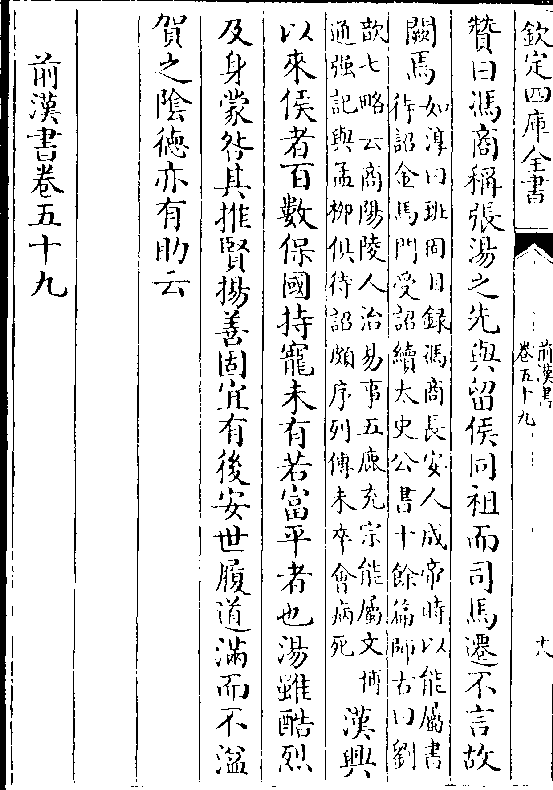 欽定四庫全書
前漢書
卷五十九
十八
贊曰馮商稱張湯之先與留侯同祖而司馬遷不言故
闕焉
如淳曰班固目録馮商長安人成帝時以能屬書
待詔金馬門受詔續太史公書十餘篇師古曰劉
歆七略云商陽陵人治易事五鹿充宗能屬文博
通强記與孟柳俱待詔頗序列傳未卒會病死
漢興
以來侯者百數保國持寵未有若富平者也湯雖酷烈
及身蒙咎其推賢揚善固宜有後安世履道滿而不溢
賀之陰德亦有助云
前漢書卷五十九